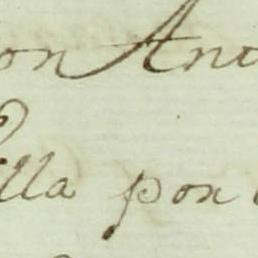 on Ant
illa por